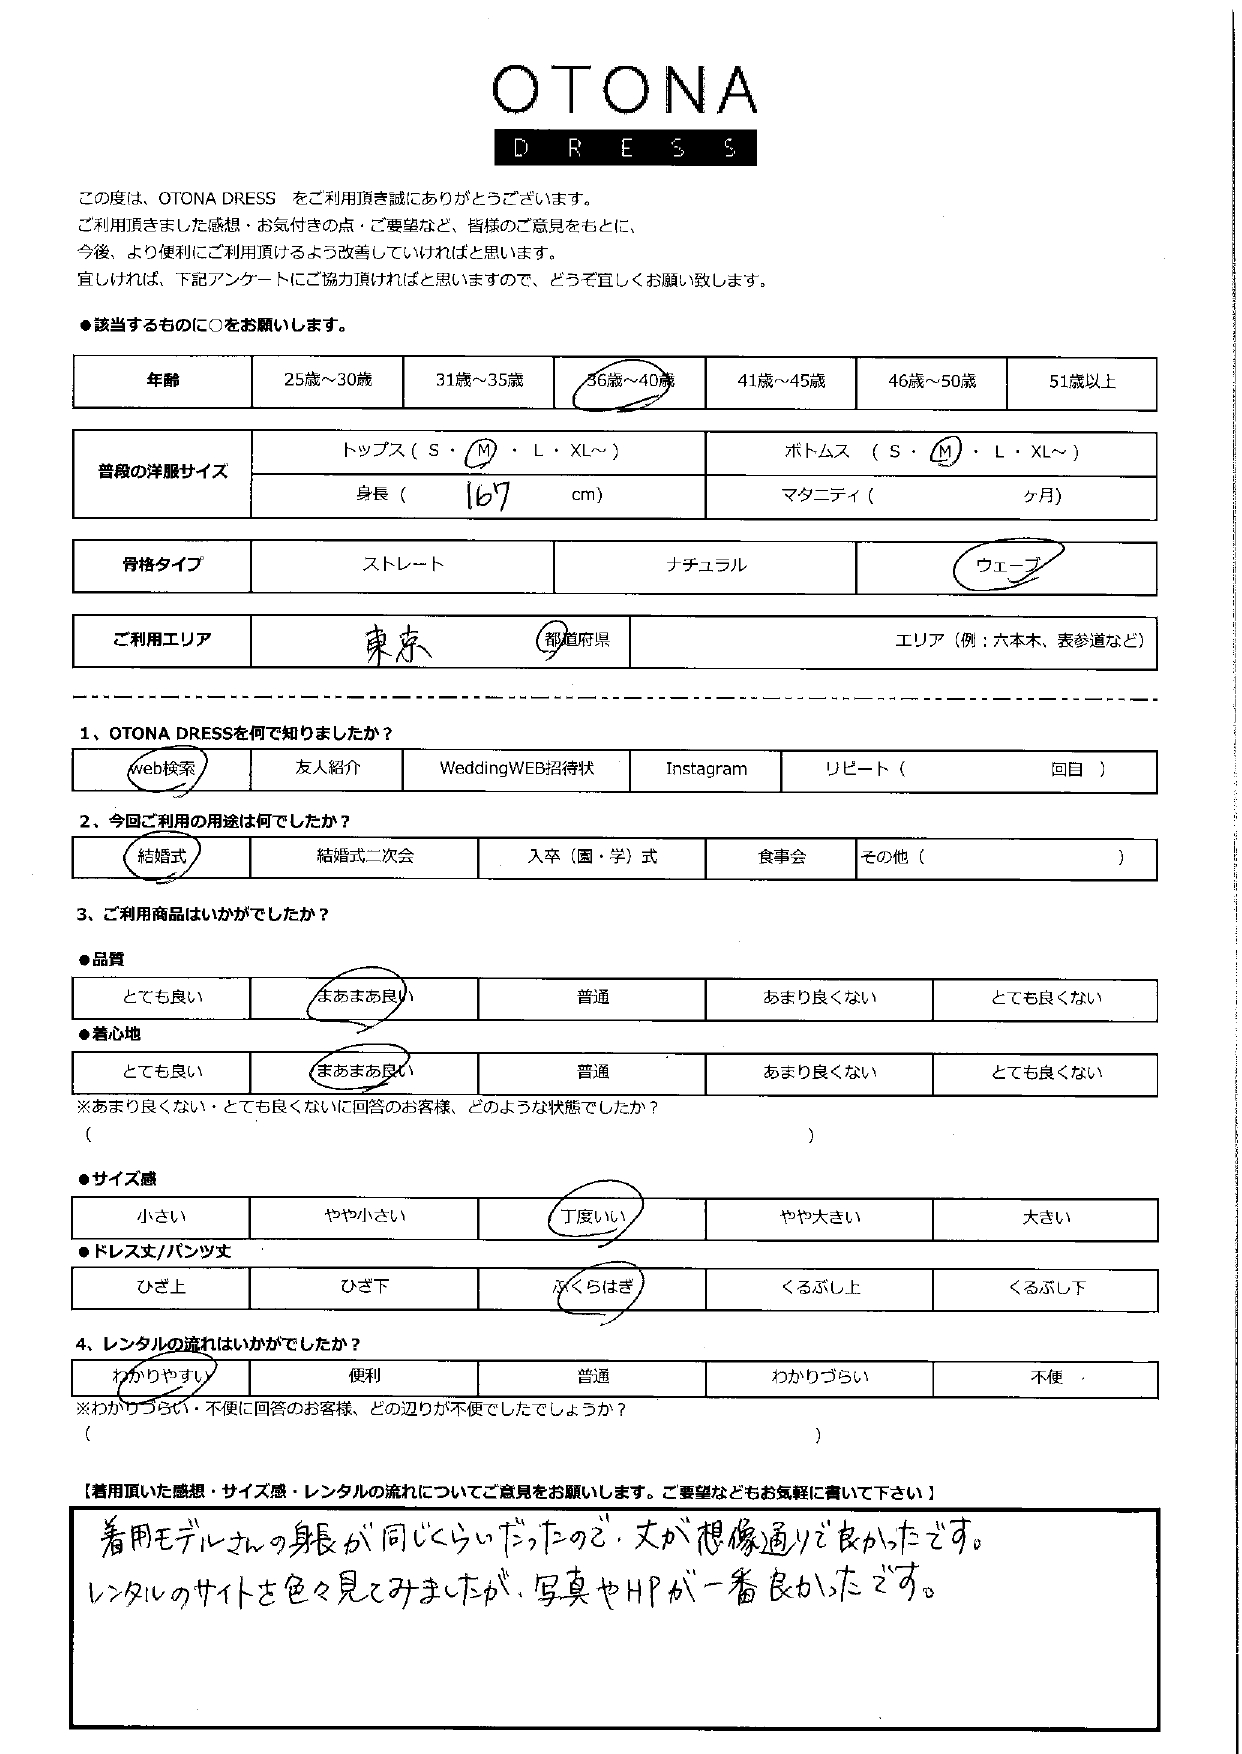 OTONA
DRESS
この度は、OTONA DRESS　をご利用頂き誠にありがとうございます。
ご利用頂きました感想・お気付きの点・ご要望など、皆様のご意見をもとに、
今後、より便利にご利用頂けるよう改善していければと思います。
宜しければ、下記アンケートにご協力頂ければと思いますので、どうぞ宜しくお願い致します。
●該当するものに○をお願いします。
年齢 25歳～30歳 31歳～35歳 36歳～40歳 41歳～45歳 46歳～50歳 51歳以上
普段の洋服サイズ トップス ( S ・ M ・ L ・ XL～ ) ボトムス ( S ・ M ・ L ・ XL～ )
身長 ( 167 cm) マタニティ ( ヶ月)
骨格タイプ ストレート ナチュラル ウェーブ
ご利用エリア 東京 都道府県 エリア（例：六本木、表参道など）
1、OTONA DRESSを何で知りましたか？
web検索 友人紹介 WeddingWEB招待状 Instagram リピート（ 回目 ）
2、今回ご利用の用途は何でしたか？
結婚式 結婚式二次会 入卒（園・学）式 食事会 その他（ ）
3、ご利用商品はいかがでしたか？
●品質
とても良い まあまあ良い 普通 あまり良くない とても良くない
●着心地
とても良い まあまあ良い 普通 あまり良くない とても良くない
※あまり良くない・とても良くないに回答のお客様、どのような状態でしたか？
( )
●サイズ感
小さい やや小さい 丁度いい やや大きい 大きい
●ドレス丈/パンツ丈
ひざ上 ひざ下 ふくらはぎ くるぶし上 くるぶし下
4、レンタルの流れはいかがでしたか？
わかりやすい 便利 普通 わかりづらい 不便
※わかりづらい・不便に回答のお客様、どの辺りが不便でしたでしょうか？
( )
【着用頂いた感想・サイズ感・レンタルの流れについてご意見をお願いします。ご要望などもお気軽に書いて下さい】
着用モデルさんの身長が同じくらいだったので、丈が想像通りで良かったです。
レンタルのサイトを色々見てみましたが、写真やHPが一番良かったです。